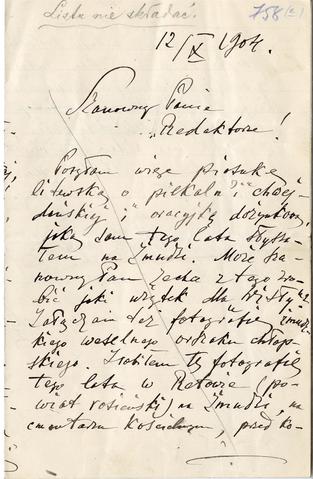 Listu nie składać.
758
12/X 1904.
Szanowny Panie
Redaktorze!
Posyłam więc piosnkę
litewską o pilkaln
i oracyjkę dożynkową,
jaką tam tego lata słysza-
łem na Żmudzi. Może sza-
nowny Pan zechce z tego zro-
bić jaki użytek dla Wisły?
Załączam też fotografię żmudz-
kiego weselnego orszaku chłop-
skiego. Zrobiłem tę fotografię
tego lata w Retowie (po-
wiat rosieński) na Żmudzi, na
cmentarzu kościelnym, przed ko-